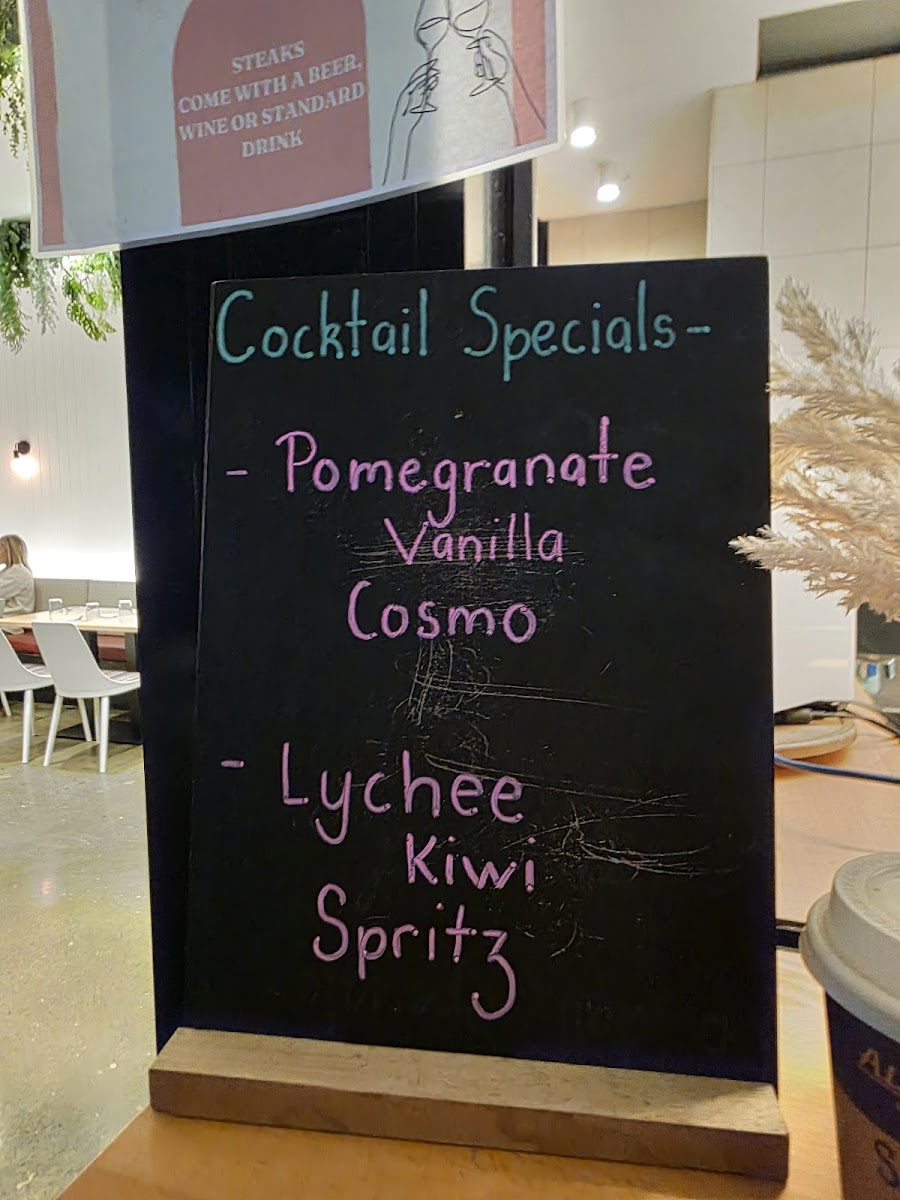 STEAKS
COME WITH A BEER,
WINE OR STANDARD
DRINK
Cocktail Specials-
- Pomegranate
Vanilla
Cosmo
- Lychee
Kiwi
Spritz